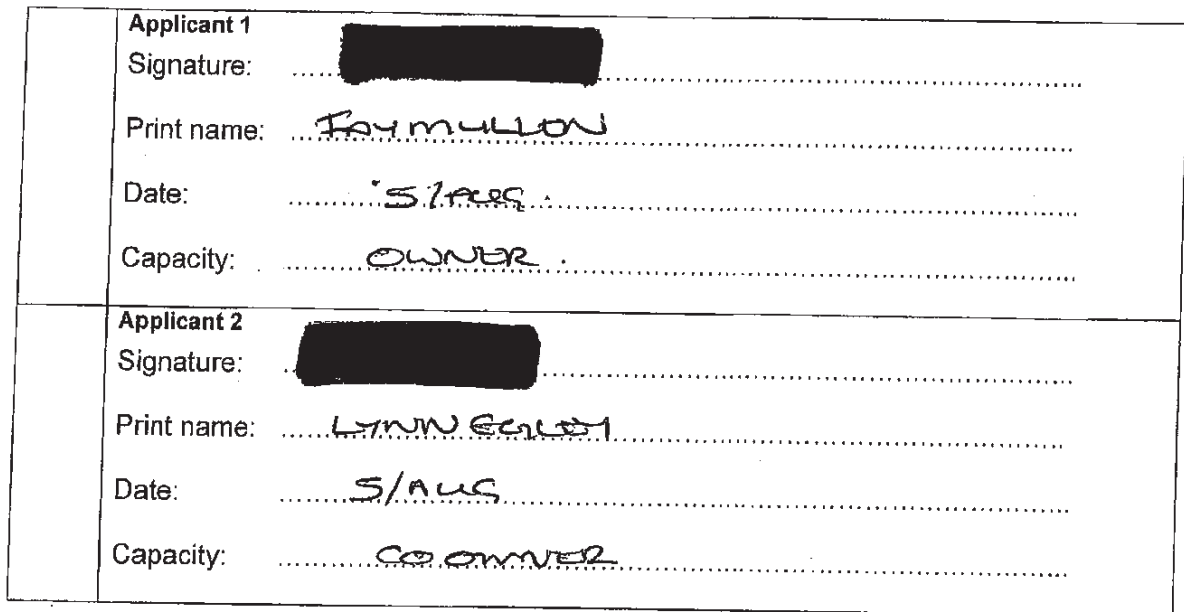 Applicant 1
Signature: ........................
Print name: MULLON
Date: 5/AUG.
Capacity: OWNER.
Applicant 2
Signature: ........................
Print name: LYNN
Date: 5/AUG
Capacity: CO OWNER